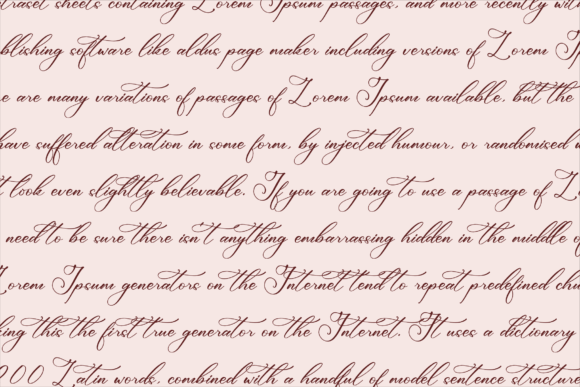 traset sheets containing Lorem Ipsum passages, and more recently wit
blishing software like aldus page maker including versions of Lorem Ip
e are many variations of passages of Lorem Ipsum available, but the
have suffered alteration in some form, by injected humour, or randomised w
t look even slightly believable. If you are going to use a passage of L
need to be sure there isn't anything embarrassing hidden in the middle o
Lorem Ipsum generators on the Internet tend to repeat predefined chu
king this the first true generator on the Internet. It uses a dictionary
200 Latin words, combined with a handful of model sentence structure